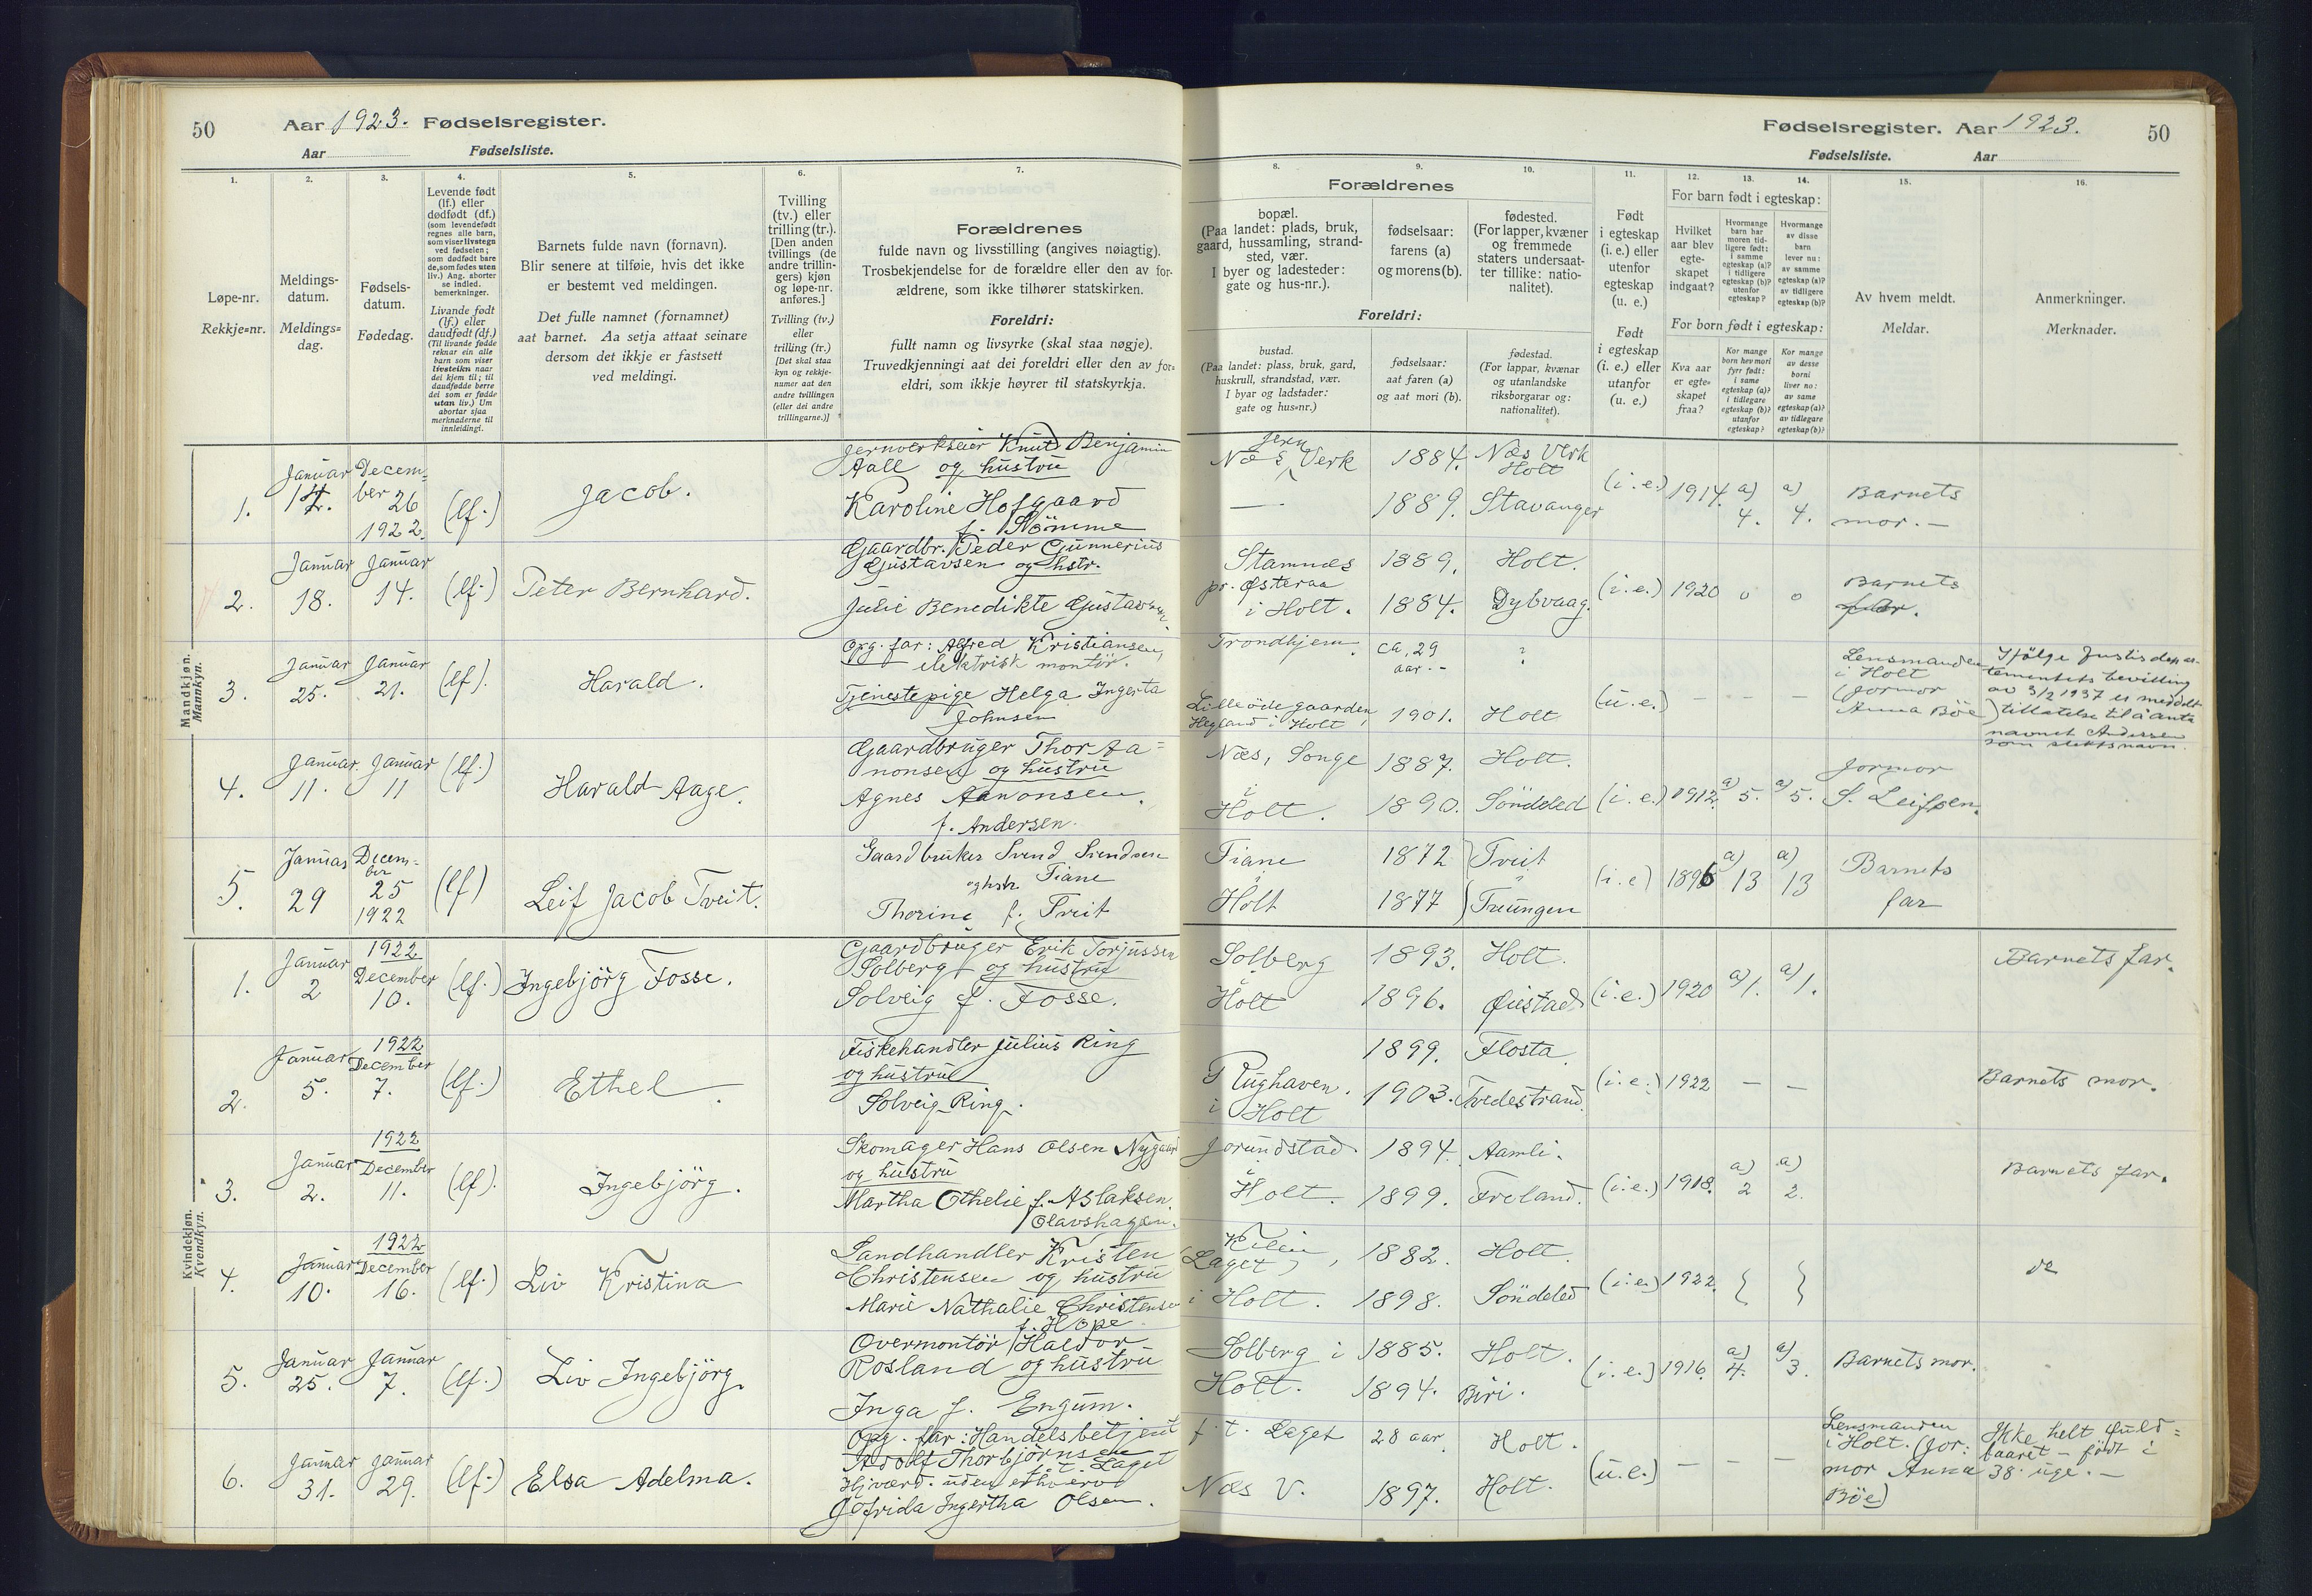 50
Aar 1923. Fødselsregister.
Aar
Fødselsliste.
Fødselsregister. Aar 1923.
50
Fødselsliste.
Aar
1.
2.
3.
4.
5.
6.
7.
Løpe-nr.
Rekkje=nr.
Meldings-
datum.
Meldings=
dag.
Fødsels-
datum.
Fødedag.
Levende født
(lf.) eller
dødfødt (df.)
(som levendefødt
regnes alle barn,
som viser livstegn
ved fødselen;
som dødfødt bare
de, som fødes uten
liv.) Ang. aborter
se indled.
bemerkninger.
Livande født
(lf.) eller
daudfødt (df.)
(Til livande fødde
reknar ein alle
barn som viser
livsteikn naar
dei kjem til; til
daudfødde berre
dei som er fødde
utan liv.) Um
abortar sjaa
merknaderne til
innleidingi.
Barnets fulde navn (fornavn).
Blir senere at tilføie, hvis det ikke
er bestemt ved meldingen.
Det fulle namnet (fornamnet)
aat barnet. Aa setja attaat seinare
dersom det ikkje er fastsett
ved meldingi.
Tvilling
(tv.) eller
trilling (tr.).
[Den anden
tvillings (de
andre trillin-
gers) kjøn
og løpe-nr.
anføres.]
Tvilling (tv.)
eller
trilling (tr.)
[Det skal staa
kyn og rekkje-
numer aat den
andre tvillingen
(eller dei andre
trillingarne.)]
Forældrenes
fulde navn og livsstilling (angives nøiagtig).
Trosbekjendelse for de forældre eller den av for-
ældrene, som ikke tilhører statskirken.
Foreldri:
fullt namn og livsyrke (skal staa nøgje).
Truvedkjenningi aat dei foreldri eller den av for-
eldri, som ikkje høyrer til statskyrkja.
8.
9.
10.
11.
12.
13.
14.
15.
16.
Forældrenes
bopæl.
(Paa landet: plads, bruk,
gaard, hussamling, strand-
sted, vær.
I byer og ladesteder:
gate og hus-nr.).
fødselsaar:
farens (a)
og morens (b).
fødested.
(For lapper, kvæner
og fremmede
staters undersaat-
ter tillike: natio-
nalitet).
Foreldri:
bustad.
(Paa landet: plass, bruk, gard,
huskrull, strandstad, vær.
I byar og ladstader:
gate og hus=nr.)
fødselsaar:
aat faren (a)
og aat mori (b).
fødestad.
(For lappar, kvænar
og utanlandske
riksborgarar og:
nationalitet).
Født
i egteskap
(i. e.) eller
utenfor
egteskap
(u. e.)
Født
i egteskap
(i. e.) eller
utanfor
(u. e.)
For barn født i egteskap:
Hvilket
aar blev
egte-
skapet
indgaat?
Hvormange
barn har
moren tid-
ligere født:
i samme
egteskap (a)?
i tidligere
egteskap (b)?
utenfor
egteskap?
Hvormange
av disse
barn
lever nu:
av samme
egteskap (a)?
av tidligere
egteskap (b)?
For born født i egteskap:
Kva aar
er egte=
skapet
fraa?
Kor mange
born hev mori
fyrr født:
i same
egteskap (a)?
i tidlegare
egteskap (b)?
utanfor
egteskap?
Kor mange
av desse
borni
liver no:
av same
egteskap (a)?
av tidlegare
egteskap (b)?
Av hvem meldt.
Meldar.
Anmerkninger.
Merknader.
Mandkjøn.
Mannkyn.
1. Januar 12. Decem=
ber 26
1922. (lf.) Jacob.
Jernverkseier Knut Benjamin
Aall og hustru
Karoline Hofgaard
f. Slømme
Næs Jern Verk 1884. Næs Verk
Holt
— 1889. Stavanger (i.e.) 1914. a) 4. a) 4. Barnets
mor. —
2. Januar 18. Januar 14. (lf.) Peter Bernhard.
Gaardbr. Peder Gunnerius
Gustavsen og hstr.
Julie Benedikte Gustavsen.
Stamnes 1889. Holt.
pr. Østeraa
i Holt. 1884. Dybvaag. (i.e.) 1920 0 0 Barnets
far.
3. Januar 25. Januar 21. (lf.) Harald.
Opg. far: Alfred Kristiansen,
elektrisk montør.
Tjenestepige Helga Ingerta
Johnsen
Trondhjem. ca. 29
aar. — ?
Lille ødegaarden
Hegland i Holt, 1901. Holt (u.e.) — — — Lensmanden
i Holt
(Jormor
Anna Böe)
Ifølge Justisdepar-
tementets bevilling
av 3/2 1937 er meddelt
tillatelse til å anta
navnet Andersen
som slektsnavn.
4. Januar. 11. Januar 11 (lf.) Harald Aage.
Gaardbruger Thor Aa=
nonsen og hustru
Agnes Aanonsen.
f. Andersen.
Næs, Songe 1887. Holt.
i
Holt. 1890. Söndeled (i.e.) 1912. a) 5. a) 5. Jormor
S. Leifsen.
5. Januar 29 Decem=
ber
25
1922 (lf) Leif Jacob Tveit.
Gaardbruker Svend Svendsen
og hstr. Tiane
Thorine f. Tveit
Tiane 1872 Tveit
Holt 1877 Treungen (i.e) 1896 a) 13 a) 13 Barnets
far
Kvindekjøn.
Kvendkyn.
1. Januar 2 1922
December
10. (lf.) Ingebjörg Fosse.
Gaardbruger Erik Torjussen
Solberg og hustru
Solveig f. Fosse.
Solberg 1893. Holt.
i
Holt 1896. Øiestad (i.e.) 1920 a) 1. a) 1. Barnets far.
2. Januar 5. 1922
December
7. (lf.) Ethel.
Fiskehandler Julius Ring
og hustru
Solveig Ring.
1899. Flosta
Rughaven.
i Holt 1903. Tvedestrand. (i.e.) 1922 — — Barnets mor.
3. Januar 2. 1922
December
11. (lf). Ingebjörg.
Skomager Hans Olsen Nygaard
og hustru
Martha Othelie f. Aslaksen
Olavshagen.
Jorundstad 1894. Aamli.
i
Holt. 1899. Froland. (i.e.) 1918. a) 2 a) 2. Barnets far.
4. Januar 10. 1922
December
16. (lf.) Liv Kristina
Landhandler Kristen
Christensen og hustru
Marie Nathalie Christensen
f. Hope
Laget, 1882. Holt.
i Holt. 1898. Söndeled (i.e.) 1922. do
5. Januar 25. Januar 7. (lf.) Liv Ingebjörg.
Overmontör Haldor
Rosland og hustru
Inga f. Engum.
Solberg i 1885. Holt.
Holt. 1894. Biri. (i.e.) 1916. a) 4. a) 3. Barnets mor.
6. Januar 31. Januar 29. (lf.) Elsa Adelma.
Opg. far: Handelsbetjent
Adolf Thorbjörnsen
f. t. Laget
Hjværd. uden erhverv
Gofrida Ingertha Olsen.
f. t. Laget 28 aar. Holt.
Næs V. 1897. Holt. (u.e.) — — — Lensmanden
i Holt. (Jor:
mor Anna
Böe)
Ikke helt fuld=
baaret — født i
38. uge. —